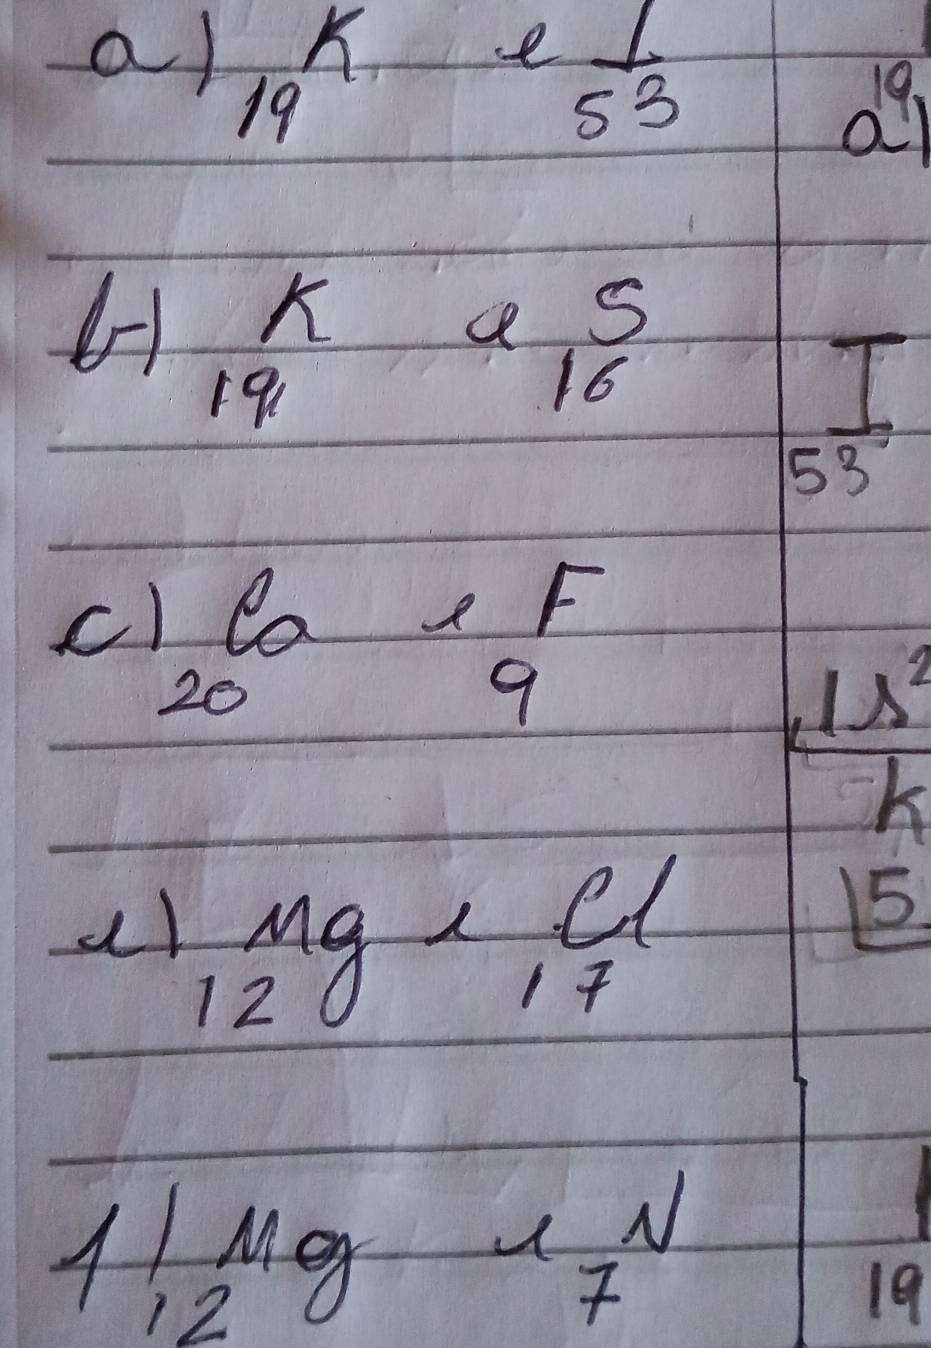 a) K e I
19 53
b) K e S
19 16
c) Ca e F
20 9
e) Mg e Cl
12 17
f) Mg e N
12 7
19
a)
I
53
1s²
K
15
19